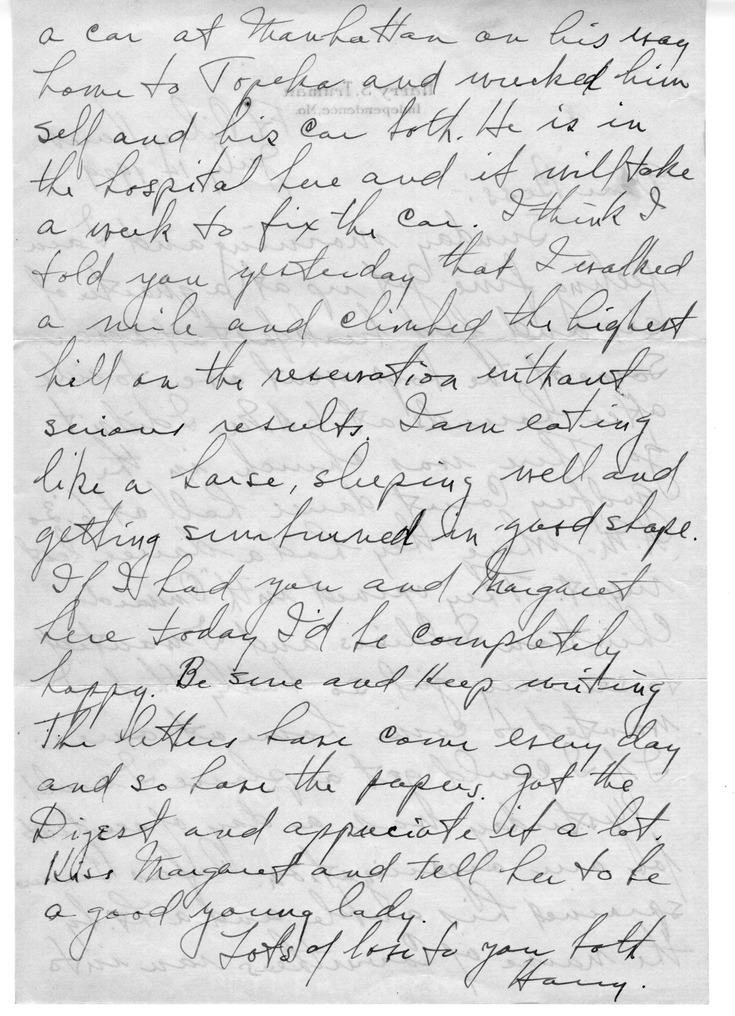 a car at Manhattan on his way
home to Topeka and wrecked him
self and his car both. He is in
the hospital here and it will take
a week to fix the car. I think I
told you yesterday that I walked
a mile and climbed the highest
hill on the reservation without
serious results. I am eating
like a horse, sleeping well and
getting sunburned in good shape.
If I had you and Margaret
here today I'd be completely
happy. Be sure and keep writing
The letters have come every day
and so have the papers. Got the
Digest and appreciate it a lot.
Kiss Margaret and tell her to be
a good young lady.
Lots of love to you both
Harry.